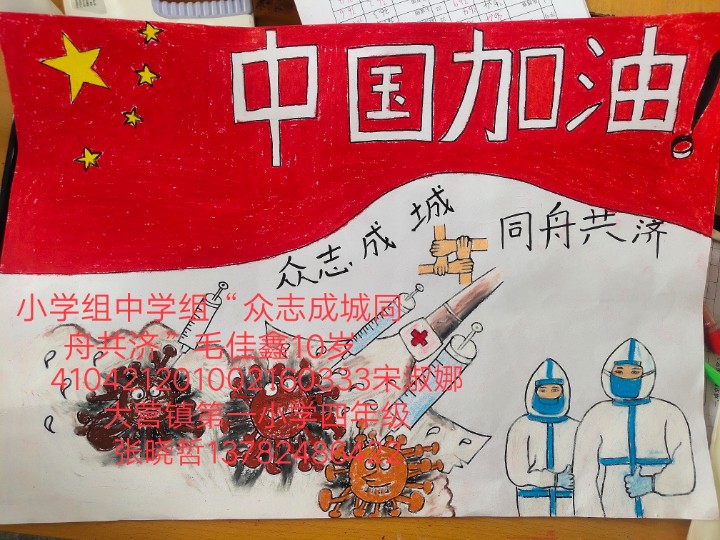 中国加油!
众志成城 同舟共济
小学组中学组“众志成城同
舟共济”毛佳鑫10岁
410421201002160333宋淑娜
大营镇第一小学四年级
张晓哲